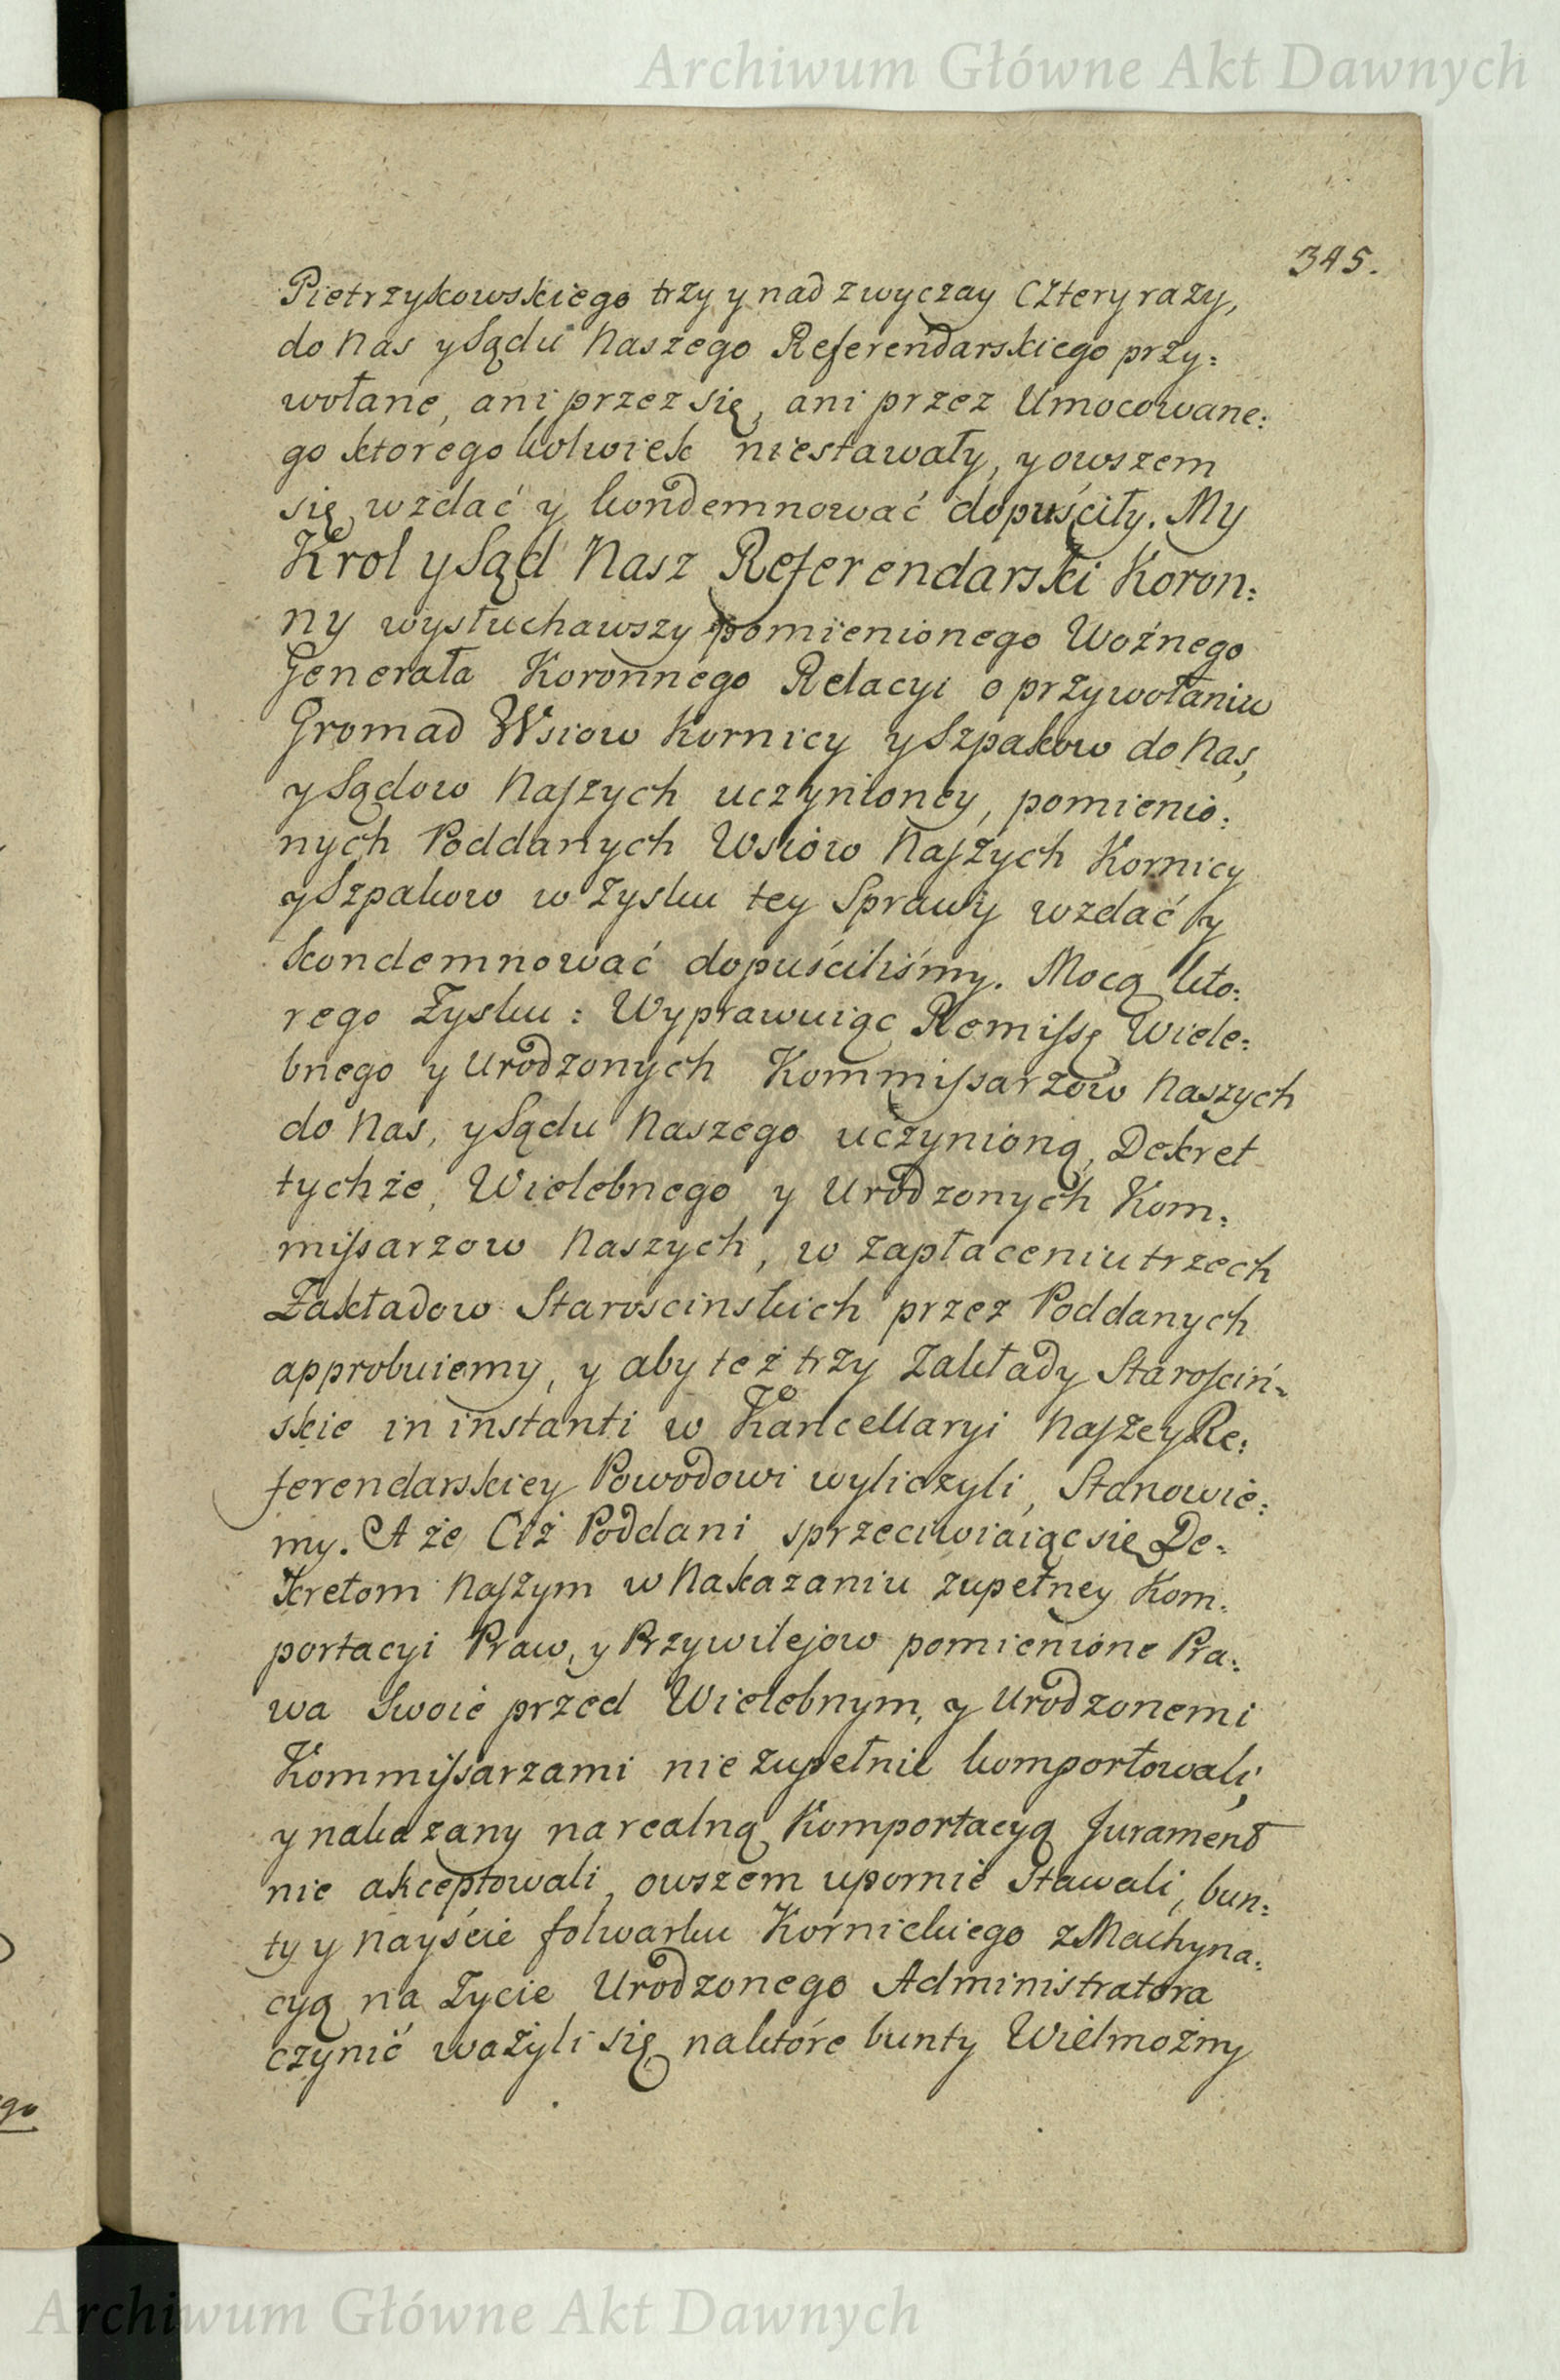 Archiwum Główne Akt Dawnych
345.
Pietrzykowskiego trzy y nad zwyczay Cztery razy,
do Nas y Sądu Naszego Referendarskiego przy:
wołane, ani przez się, ani przez Umocowane:
go ktorego kolwiek niestawały, y owszem
się wzdać y kondemnować dopuściły. My
Krol y Sąd Nasz Referendarski Koron:
ny wysłuchawszy pomienionego Woźnego
Generała Koronnego Relacyi o przywołaniu
Gromad Wsiow Kornicy y Szpakow do Nas,
y Sądow Naszych uczynioney, pomienio:
nych Poddanych Wsiow Naszych Kornicy
y Szpakow w Zysku tey Sprawy wzdać y
kondemnować dopuściliśmy. Mocą kto:
rego Zysku: Wyprawuiąc Remissę Wiele:
bnego y Urodzonych Kommissarzow Naszych
do Nas, y Sądu Naszego uczynioną, Dekret
tychże, Wielebnego y Urodzonych Kom:
missarzow Naszych, w zapłaceniu trzech
Zakładow Staroscinskich przez Poddanych
approbuiemy, y aby też trzy Zakłady Starościń:
skie in instanti w Kancellaryi Naszey Re:
ferendarskiey Powodowi wyliczyli, Stanowie:
my. A że Ciż Poddani sprzeciwiaiąc się De:
kretom Naszym w Nakazaniu zupełney Kom:
portacyi Praw, y Przywilejow pomienione Pra:
wa Swoie przed Wielebnym, y Urodzonemi
Kommissarzami nie zupełnie komportowali,
y nakazany na realną Komportacyą Jurament
nie akceptowali, owszem upornie Stawali, bun:
ty y Nayście folwarku Kornickiego z Machyna:
cyą na Zycie Urodzonego Administratora
czynić ważyli się na które bunty Wielmożny
go
Archiwum Główne Akt Dawnych